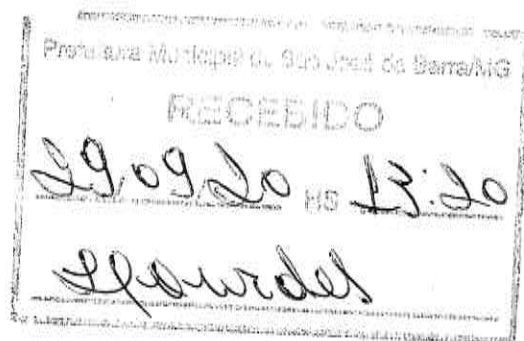 Prefeitura Municipal de São José da Barra/MG
RECEBIDO
29/09/20 HS 13:20
Lourdes